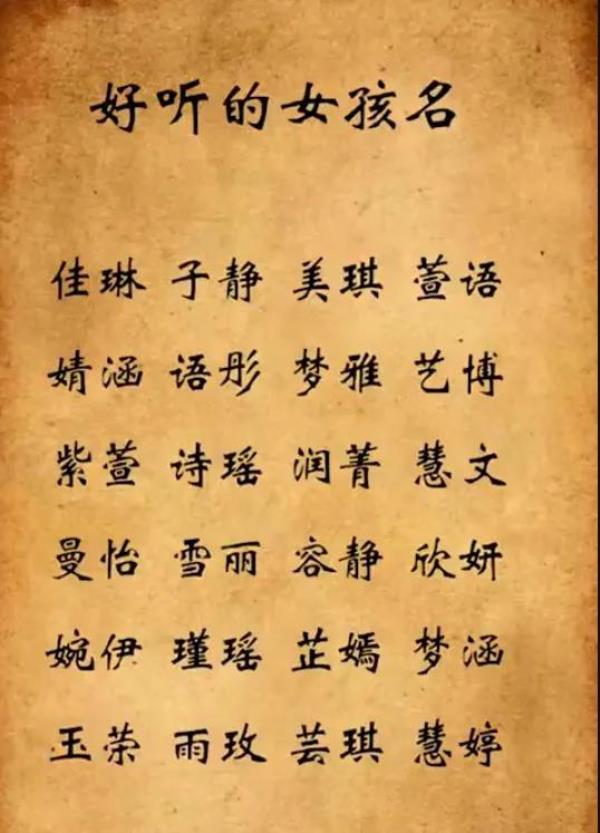 好听的女孩名
佳琳 子静 美琪 萱语
婧涵 语彤 梦雅 艺博
紫萱 诗瑶 润菁 慧文
曼怡 雪丽 容静 欣妍
婉伊 瑾瑶 芷嫣 梦涵
玉荣 雨玫 芸琪 慧婷